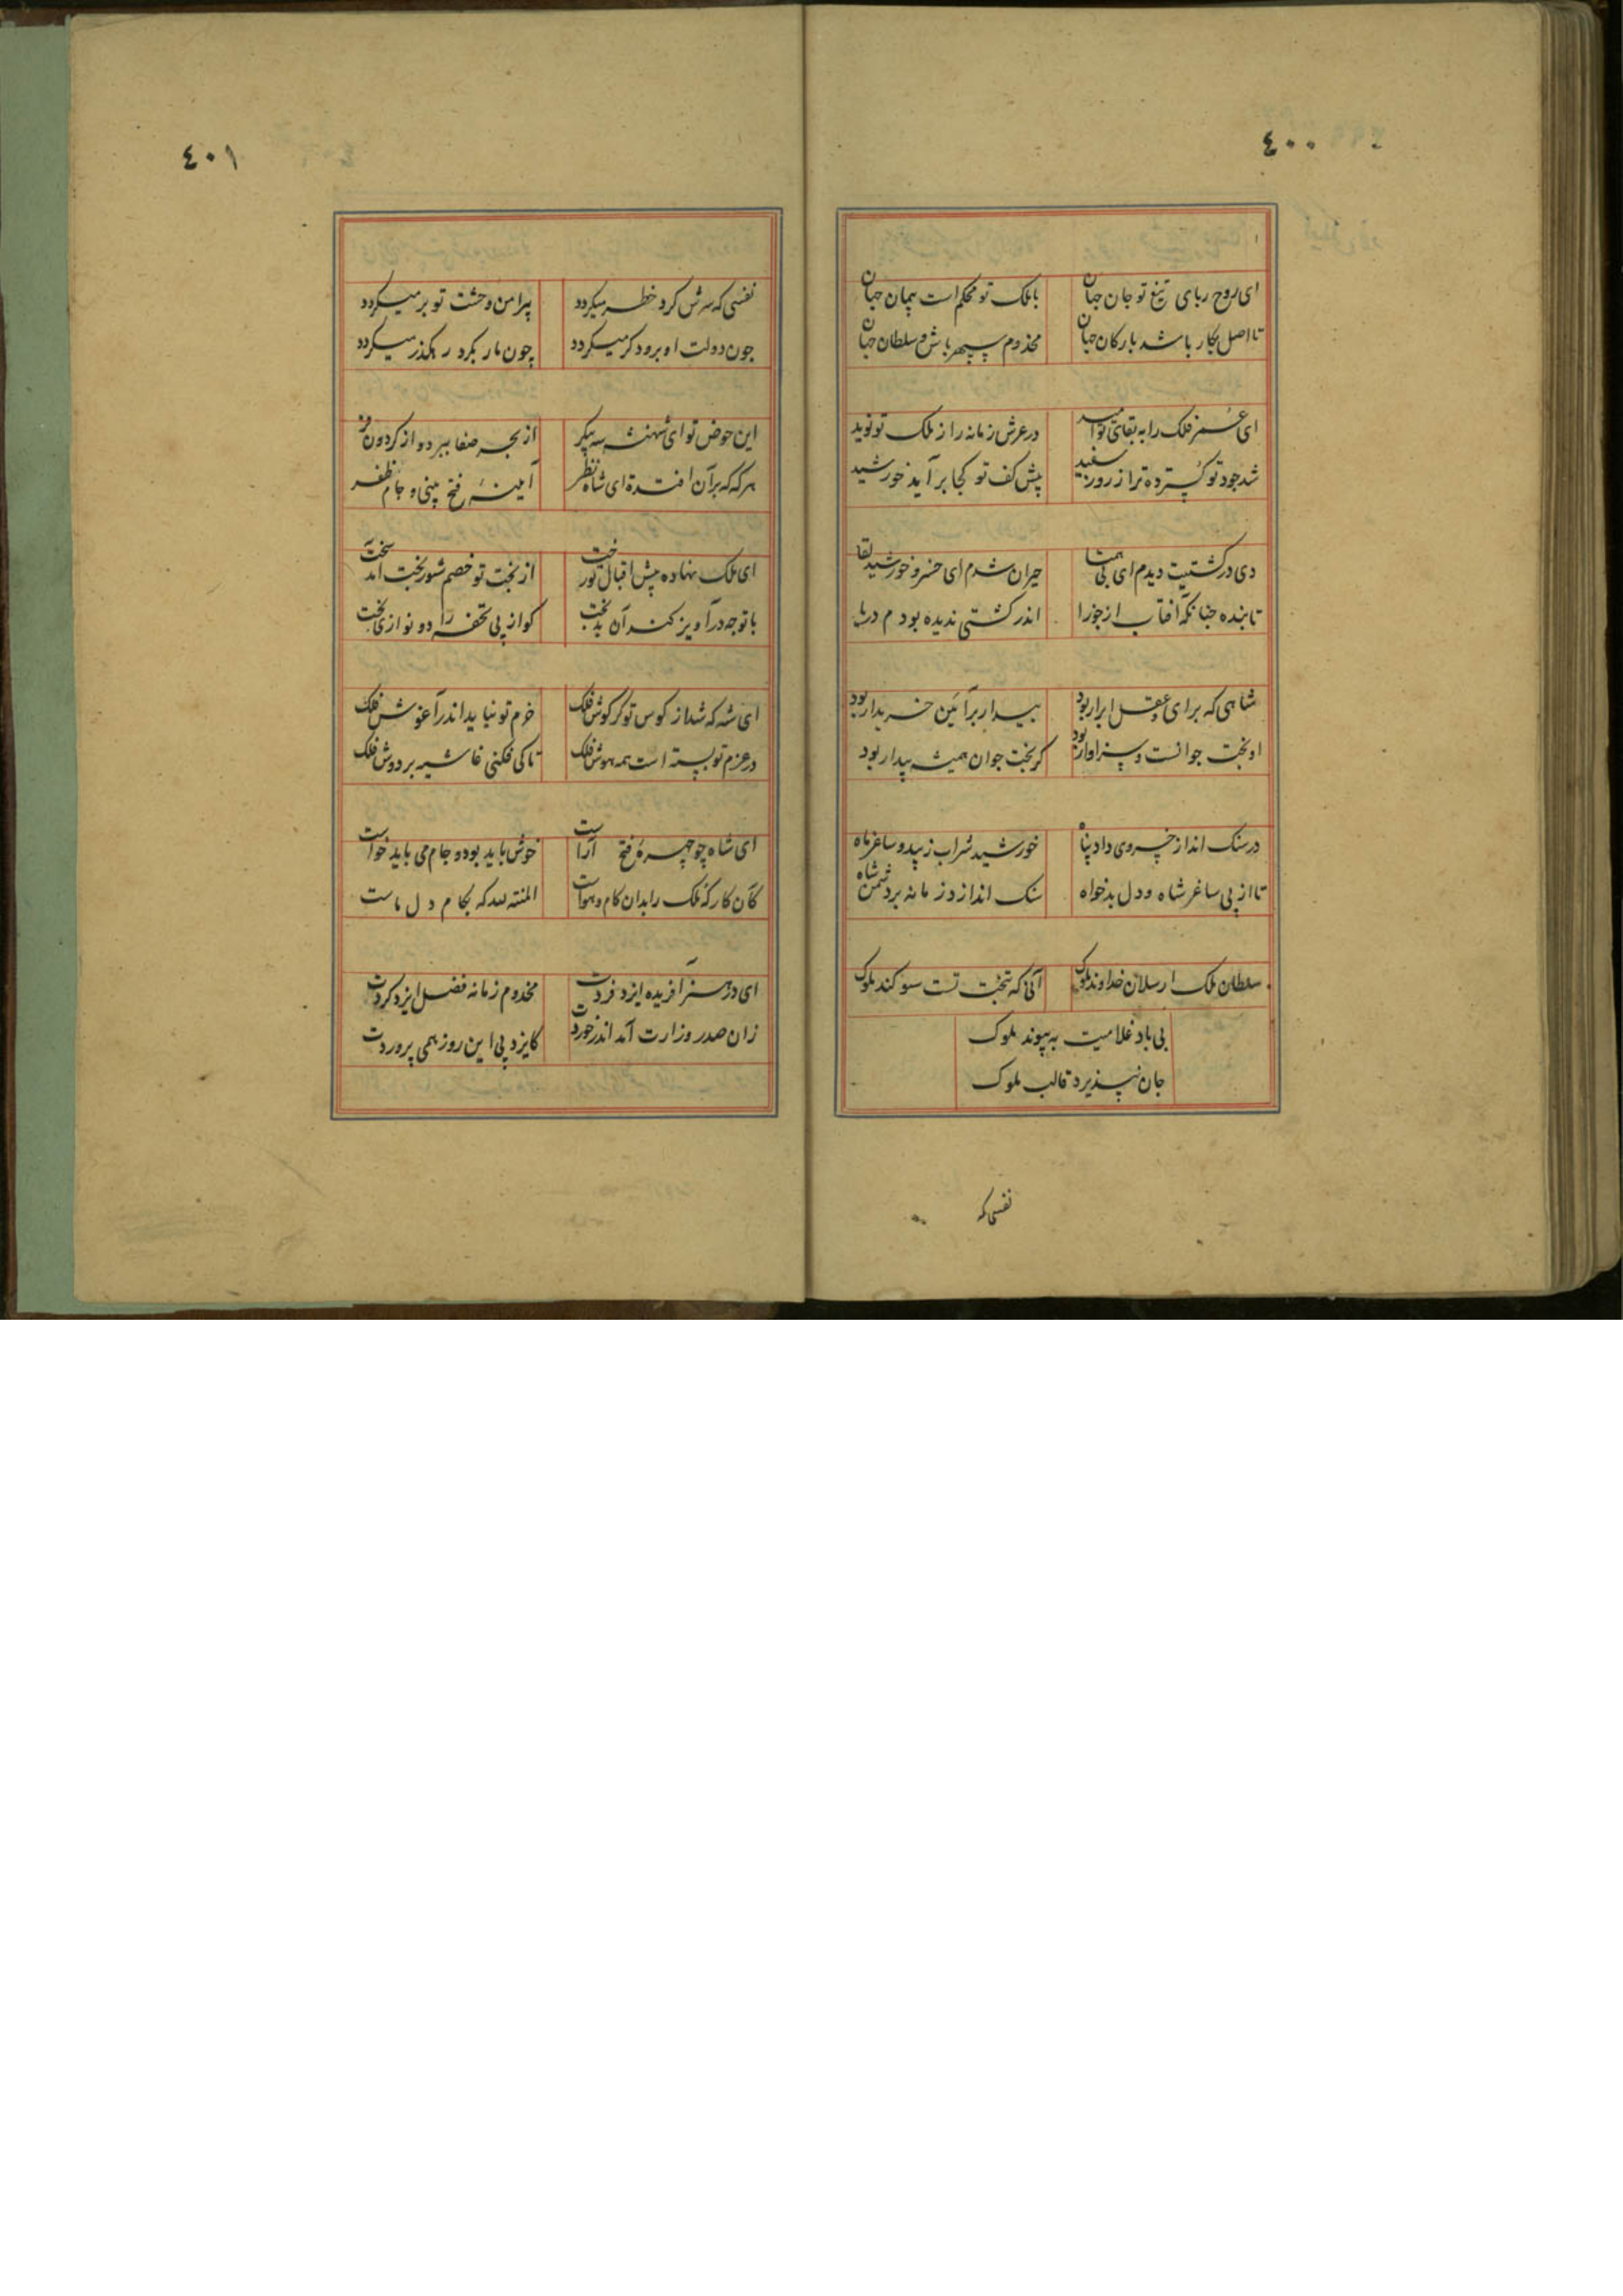 ٤٠٠
ای روح ربای تیغ تو جان جهان با ملک تو محکم است پیمان جهان
تا اصل بکار باشد بارکان جهان مخدوم سپهر باش و سلطان جهان
ای عمر فلک را به بقای تو امید در عرش زمانه را ز ملک تو نوید
شد جود تو گسترده تر از روز سفید پیش کف تو کجا بر آید خورشید
دی در کشتیت دیدم ای بی همتا حیران شدم ای خسرو خورشید لقا
تابنده چنانکه آفتاب از جوزا اندر کشتی ندیده بودم دریا
شاهی که برای و عقل ابرار بود بیدار برآئین خریدار بود
او بخت جوانست و سزاوار بود کر بخت جوان همیشه بیدار بود
در سنک انداز خسروی داد پناه خورشید شراب زیبد و ساغر ماه
تا از پی ساغر شاه و دل بدخواه سنک اندازد زمانه بر دشمن شاه
سلطان ملک ارسلان خداوند ملوک آنی که بتخت تست سوکند ملوک
بی باد غلامیت به پیوند ملوک
جان نپذیرد قالب ملوک
نفسی که
٤٠١
نفسی که سرش کرد خطر میکردد پیرامن وحشت تو بر میکردد
چون دولت او برود کر میکردد چون مار بکرد رهکذر میکردد
این حوض تو ای شهنشه مه پیکر از بحر صفا ببرد و از کردون فر
هر که که برآن افتدة ای شاه نظر آیینۀ فتح بینی و جام ظفر
ای ملک نهاده پیش اقبال تو رخت از بخت تو خصم شور بخت آمد سخت
با تو چه در آویز کند آن بدبخت کو از پی تحفه را دو نوازی بخت
ای شه که شد از کوس تو کر کوش فلک خرم تو نیاید اندر آغوش فلک
در عزم تو بسته است همه هوش فلک تا کی فکنی غاشیه بر دوش فلک
ای شاه چو چهرۀ فتح آراست خوش باید بود و جام می باید خواست
کان کار که ملک را بدان کام و هواست المنته لله که بکام دل ماست
ای در هنر آفریده ایزد فردت مخدوم زمانه فضل ایزد کردت
زان صدر وزارت آمد اندر خوردت کایزد پی این روز همی پروردت